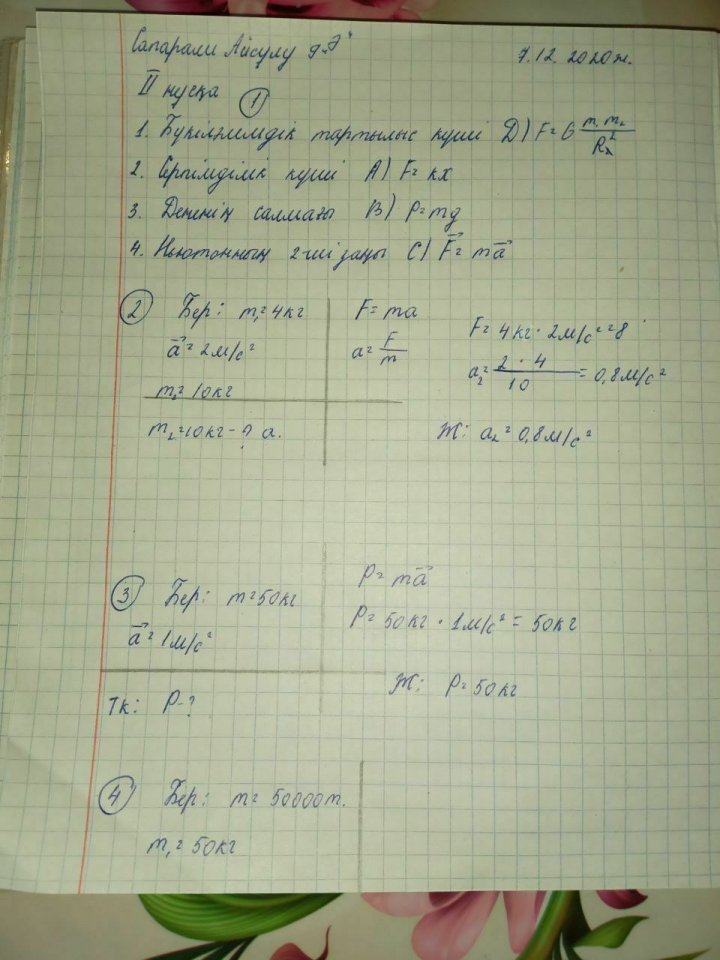 Сапарали Айсұлу 9 "Ә"
7.12.2020ж.
II нұсқа ①
1. Бүкіләлемдік тартылыс күші D) F=G m₁m₂/R²
2. Серпімділік күші A) F=kx
3. Дененің салмағы B) P=mg
4. Ньютонның 2-ші заңы C) F⃗= ma⃗
② Бер: m₁=4кг
a⃗=2м/с²
m₂=10кг
m₂=10кг-? a.
F=ma
a=F/m
F=4кг·2м/с²=8
a₂=2·4/10=0,8м/с²
Ж: a₂=0,8м/с²
③ Бер: m=50кг
a⃗=1м/с²
Тк: P-?
P=ma⃗
P=50кг·1м/с²=50кг
Ж: P=50кг
④ Бер: m=50000т.
m₁=50кг